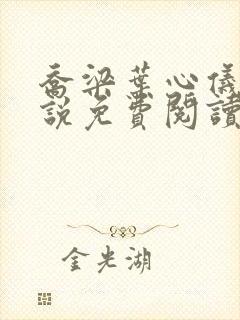 喬梁葉心儀
說免費閱讀
金光湖